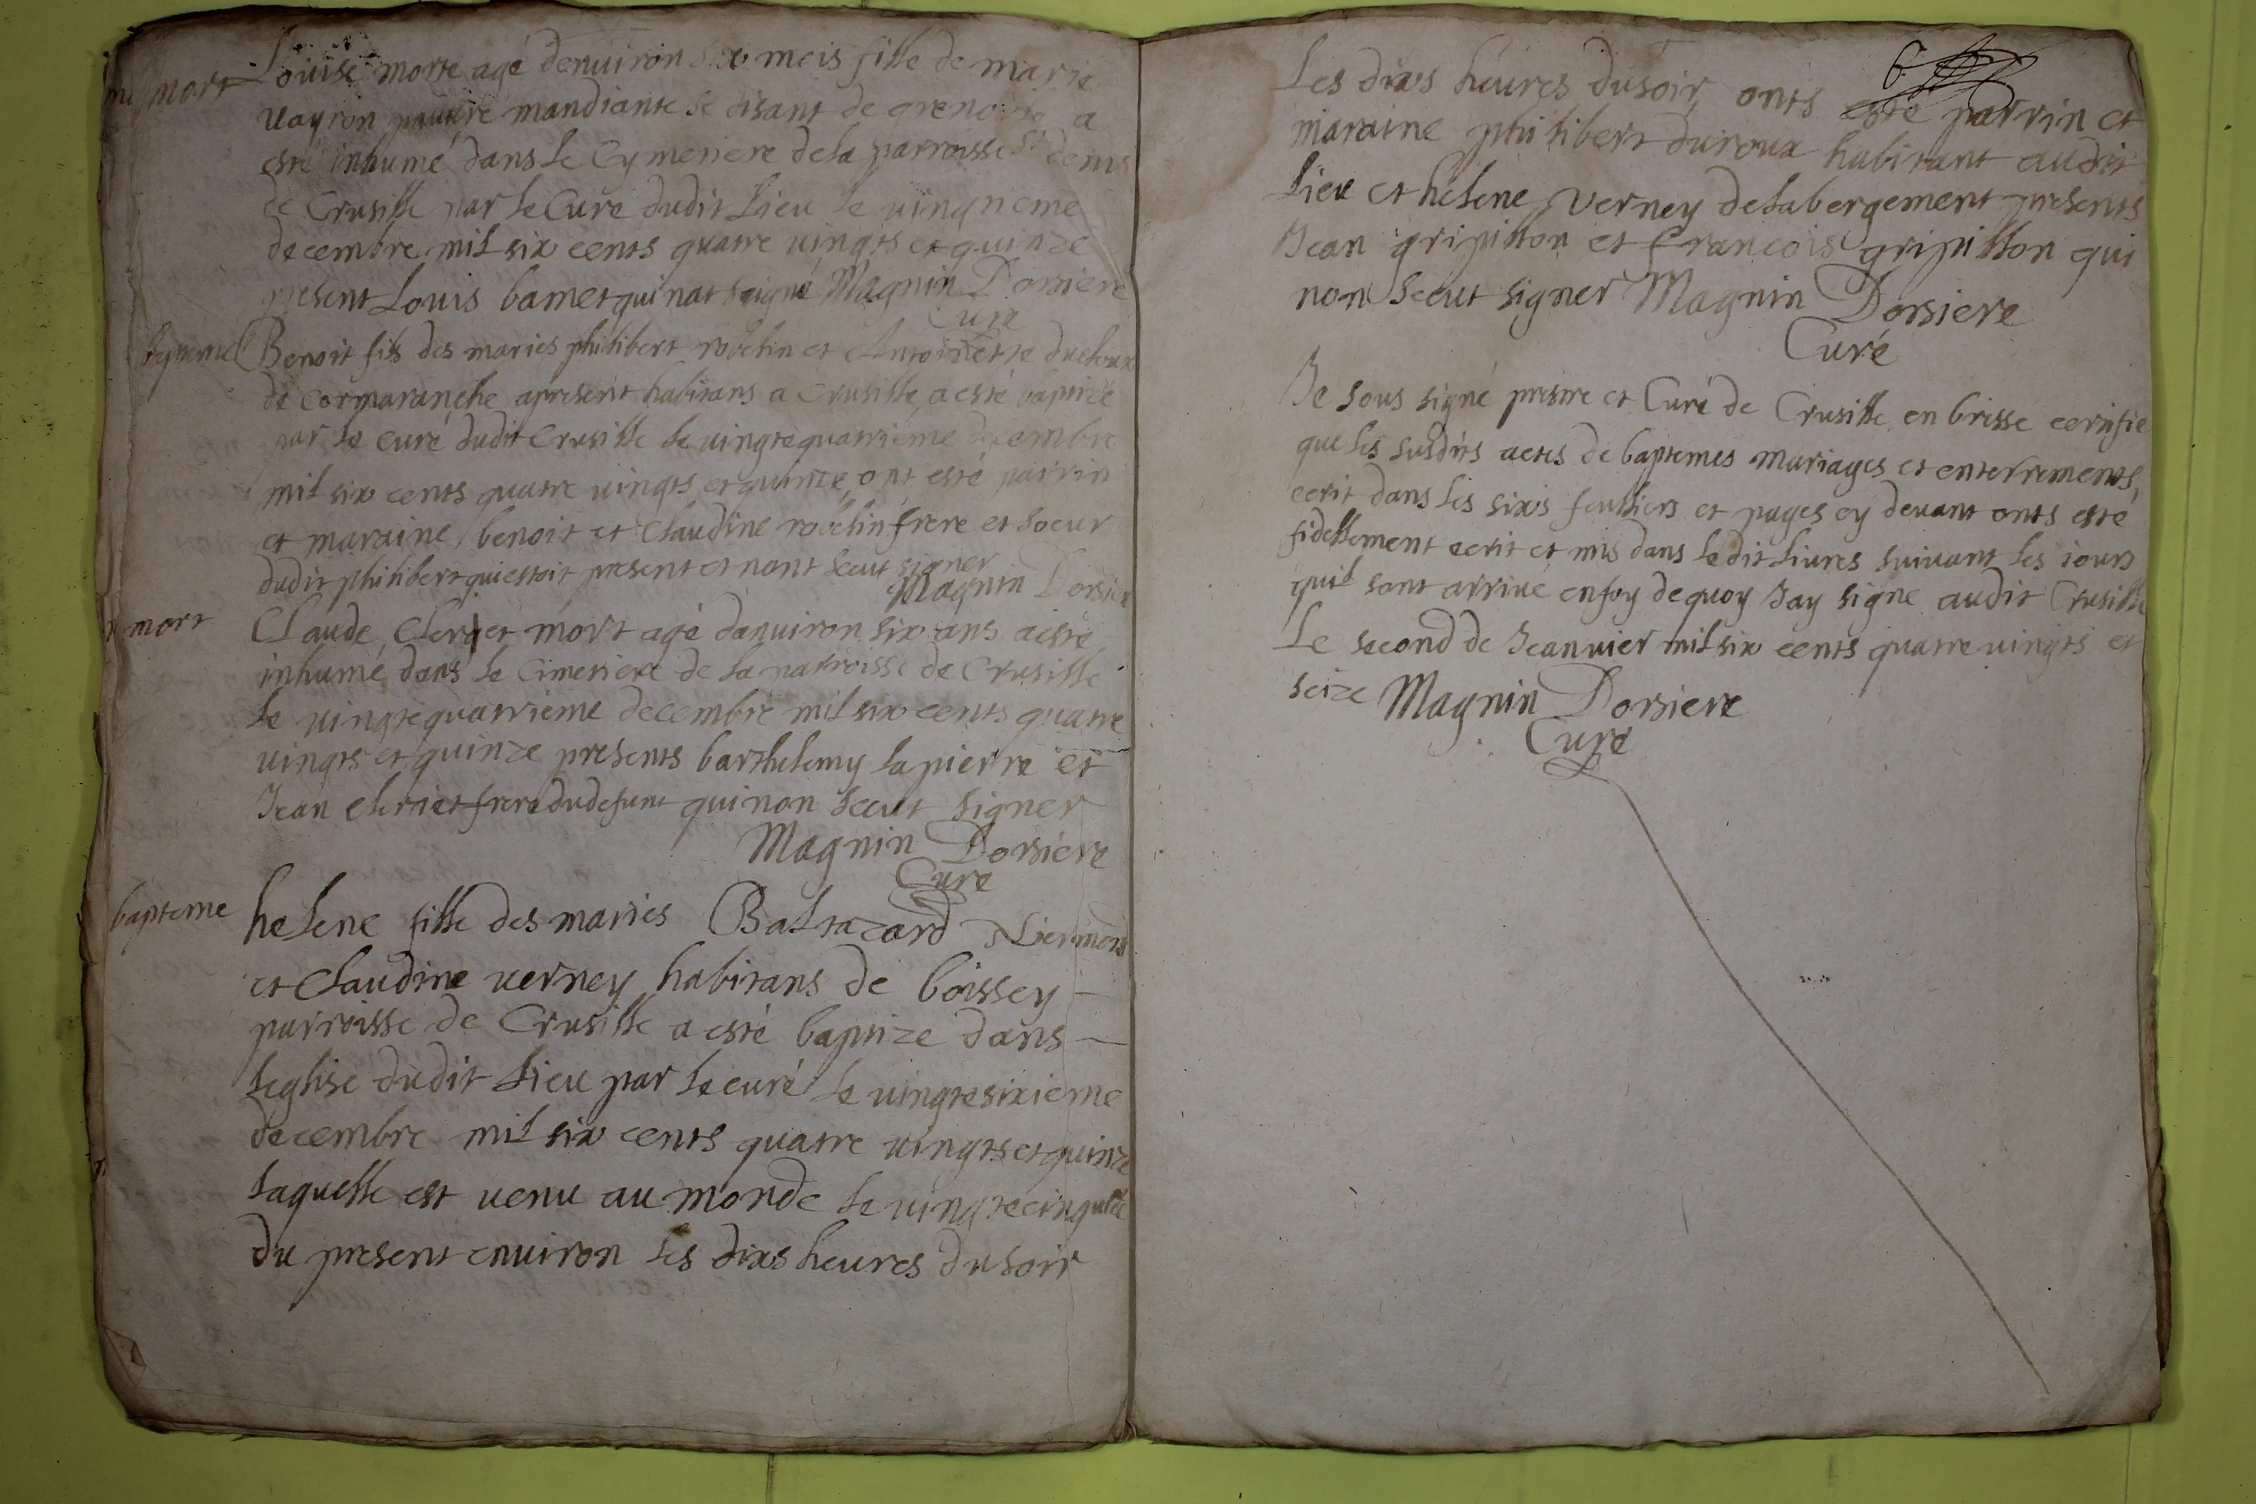 mort
Louise morte agé denuiron six mois fille de marie
vayron pauvre mandiante se disant de grenoble a
esté inhumé dans le Cymetiere dela parroisse St denis
de Crusille par le Curé dudit Lieu le vingtieme
decembre mil six cents quatre vingts et quinze
present Louis bamet qui nat signé Magnin Dorsiere
Curé
bapteme
Benoit fils des maries philibert robelin et Antoinette
de cormaranche apresent habitans a Crusille a esté baptizé
par le curé dudit Crusille le vingtequatrieme decembre
mil six cents quatre vingts et quinze ont esté parrin
et maraine benoit et Claudine robelin frere et soeur
dudit philibert qui estoit present et nont sceut signer
Magnin Dorsiere
mort
Claude Clerget mort agé danuiron six ans a esté
inhumé dans le Cimetiere de la parroisse de Crusille
le vingtequatrieme decembre mil six cents quatre
vingts et quinze presents barthelemy lapierre et
Jean frere dudefunt qui non sceut signer
Magnin Dorsiere
Curé
bapteme
helene fille des maries Baltazard
et Claudine verney habitans de boissey
parroisse de Crusille a esté baptize dans
leglise dudit Lieu par le curé le vingtesixieme
decembre mil six cents quatre vingts et quinze
laquelle est venu au monde le vingtecinquieme
du present enuiron les dixs heures du soir
6
Les dixs heures dusoir onts esté parrin et
maraine philibert duroux habitant audit
Lieu et helene verney delabergement presents
Jean gripillon et francois gripillon qui
non sceut signer Magnin Dorsiere
Curé
Je sous signé prestre et Curé de Crusille en bresse certifie
que les susdits actes de baptemes mariages et enterrements
ecrit dans les sixs feulliers et pages cy devant onts esté
fidellement ecrit et mis dans ledit livres suivant les iours
quil sont arrivé enfoy dequoy Jay signé audit Crusille
Le second de Jeanvier mil six cents quatre vingts et
seize Magnin Dorsiere
Curé